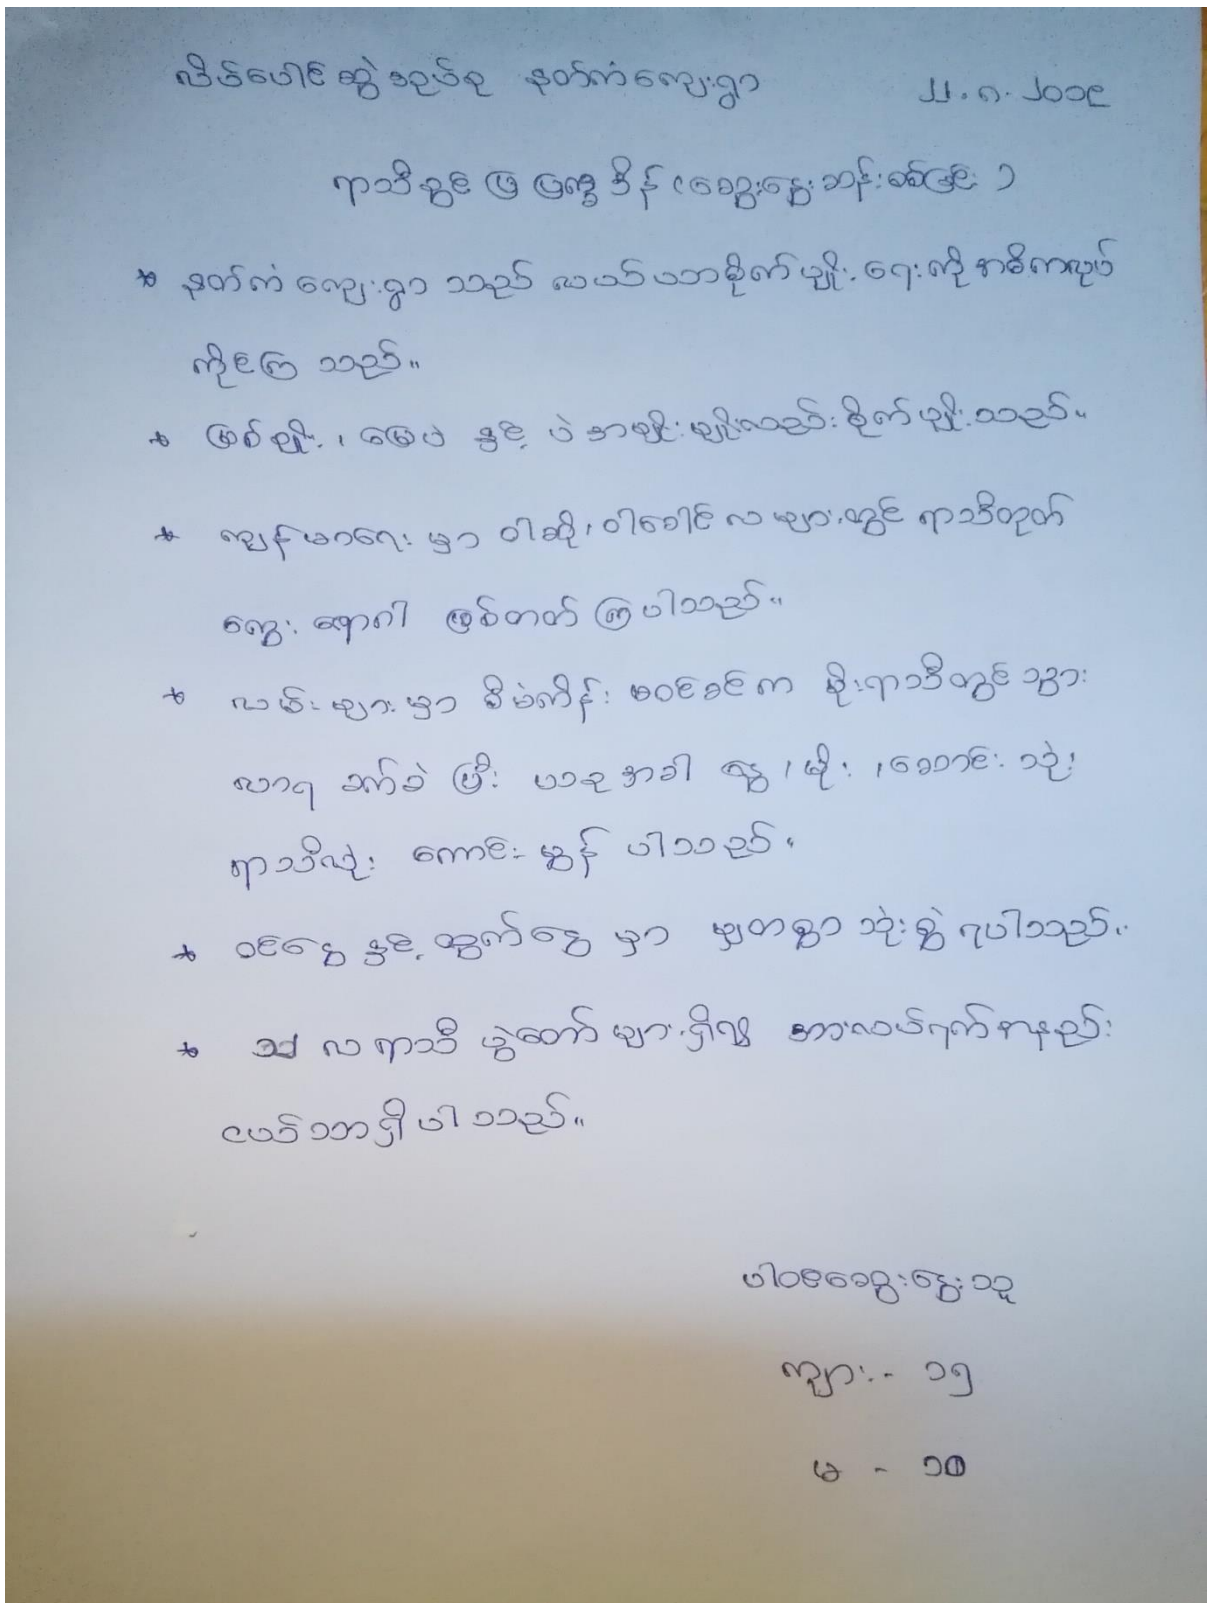 လိပ်ပေါင်ဆွဲအုပ်စု နတ်ကံကျေးရွာ ၂၂.၈.၂၀၁၉
ရာသီခွင်ပြ ပြက္ခဒိန် (ဆွေးနွေးဆန်းစစ်ခြင်း)
* နတ်ကံကျေးရွာ သည် လယ်ယာစိုက်ပျိုးရေးကို အဓိကလုပ်
ကိုင်ကြ သည်။
* မြစ်မျိုး၊ မြေပဲ နှင့် ပဲ အမျိုးမျိုးလည်း စိုက်ပျိုးသည်။
* ကျန်းမာရေး မှာ ဝါဆို၊ ဝါခေါင် လ များတွင် ရာသီတုတ်
ကွေး ရောဂါ ဖြစ်တတ် ကြပါသည်။
* လမ်းများမှာ စီမံကိန်း မဝင်ခင်က မိုးရာသီတွင် သွား
လာရ ခက်ခဲ ပြီး ယခုအခါ နွေ၊ မိုး၊ ဆောင်း သုံး
ရာသီလုံး ကောင်းမွန် ပါသည်။
* ဝင်ငွေ နှင့် ထွက်ငွေ မှာ မျှတစွာ သုံးစွဲ ရပါသည်။
* ၁၂ လ ရာသီ ပွဲတော် များရှိ၍ အားလပ်ရက် အနည်း
ငယ်သာရှိ ပါသည်။
ပါဝင်ဆွေးနွေးသူ
ကျား - ၁၅
မ - ၁၀